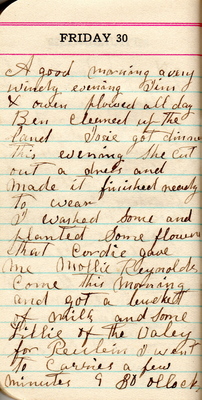 FRIDAY 30
A good morning a very
windy evening Jim
& owen plowed all day
Ben cleaned up the
land Josie got dinner
this evening She cut
out a dress and
made it finished ready
to wear
I washed Some and
planted Some flowers
that Cordie gave
me Mollie Reynolds
Come this Morning
and got a bucket
of milk and some
Lillie of the Valey
for I went
To Carries a few
minutes 9 80 oClock